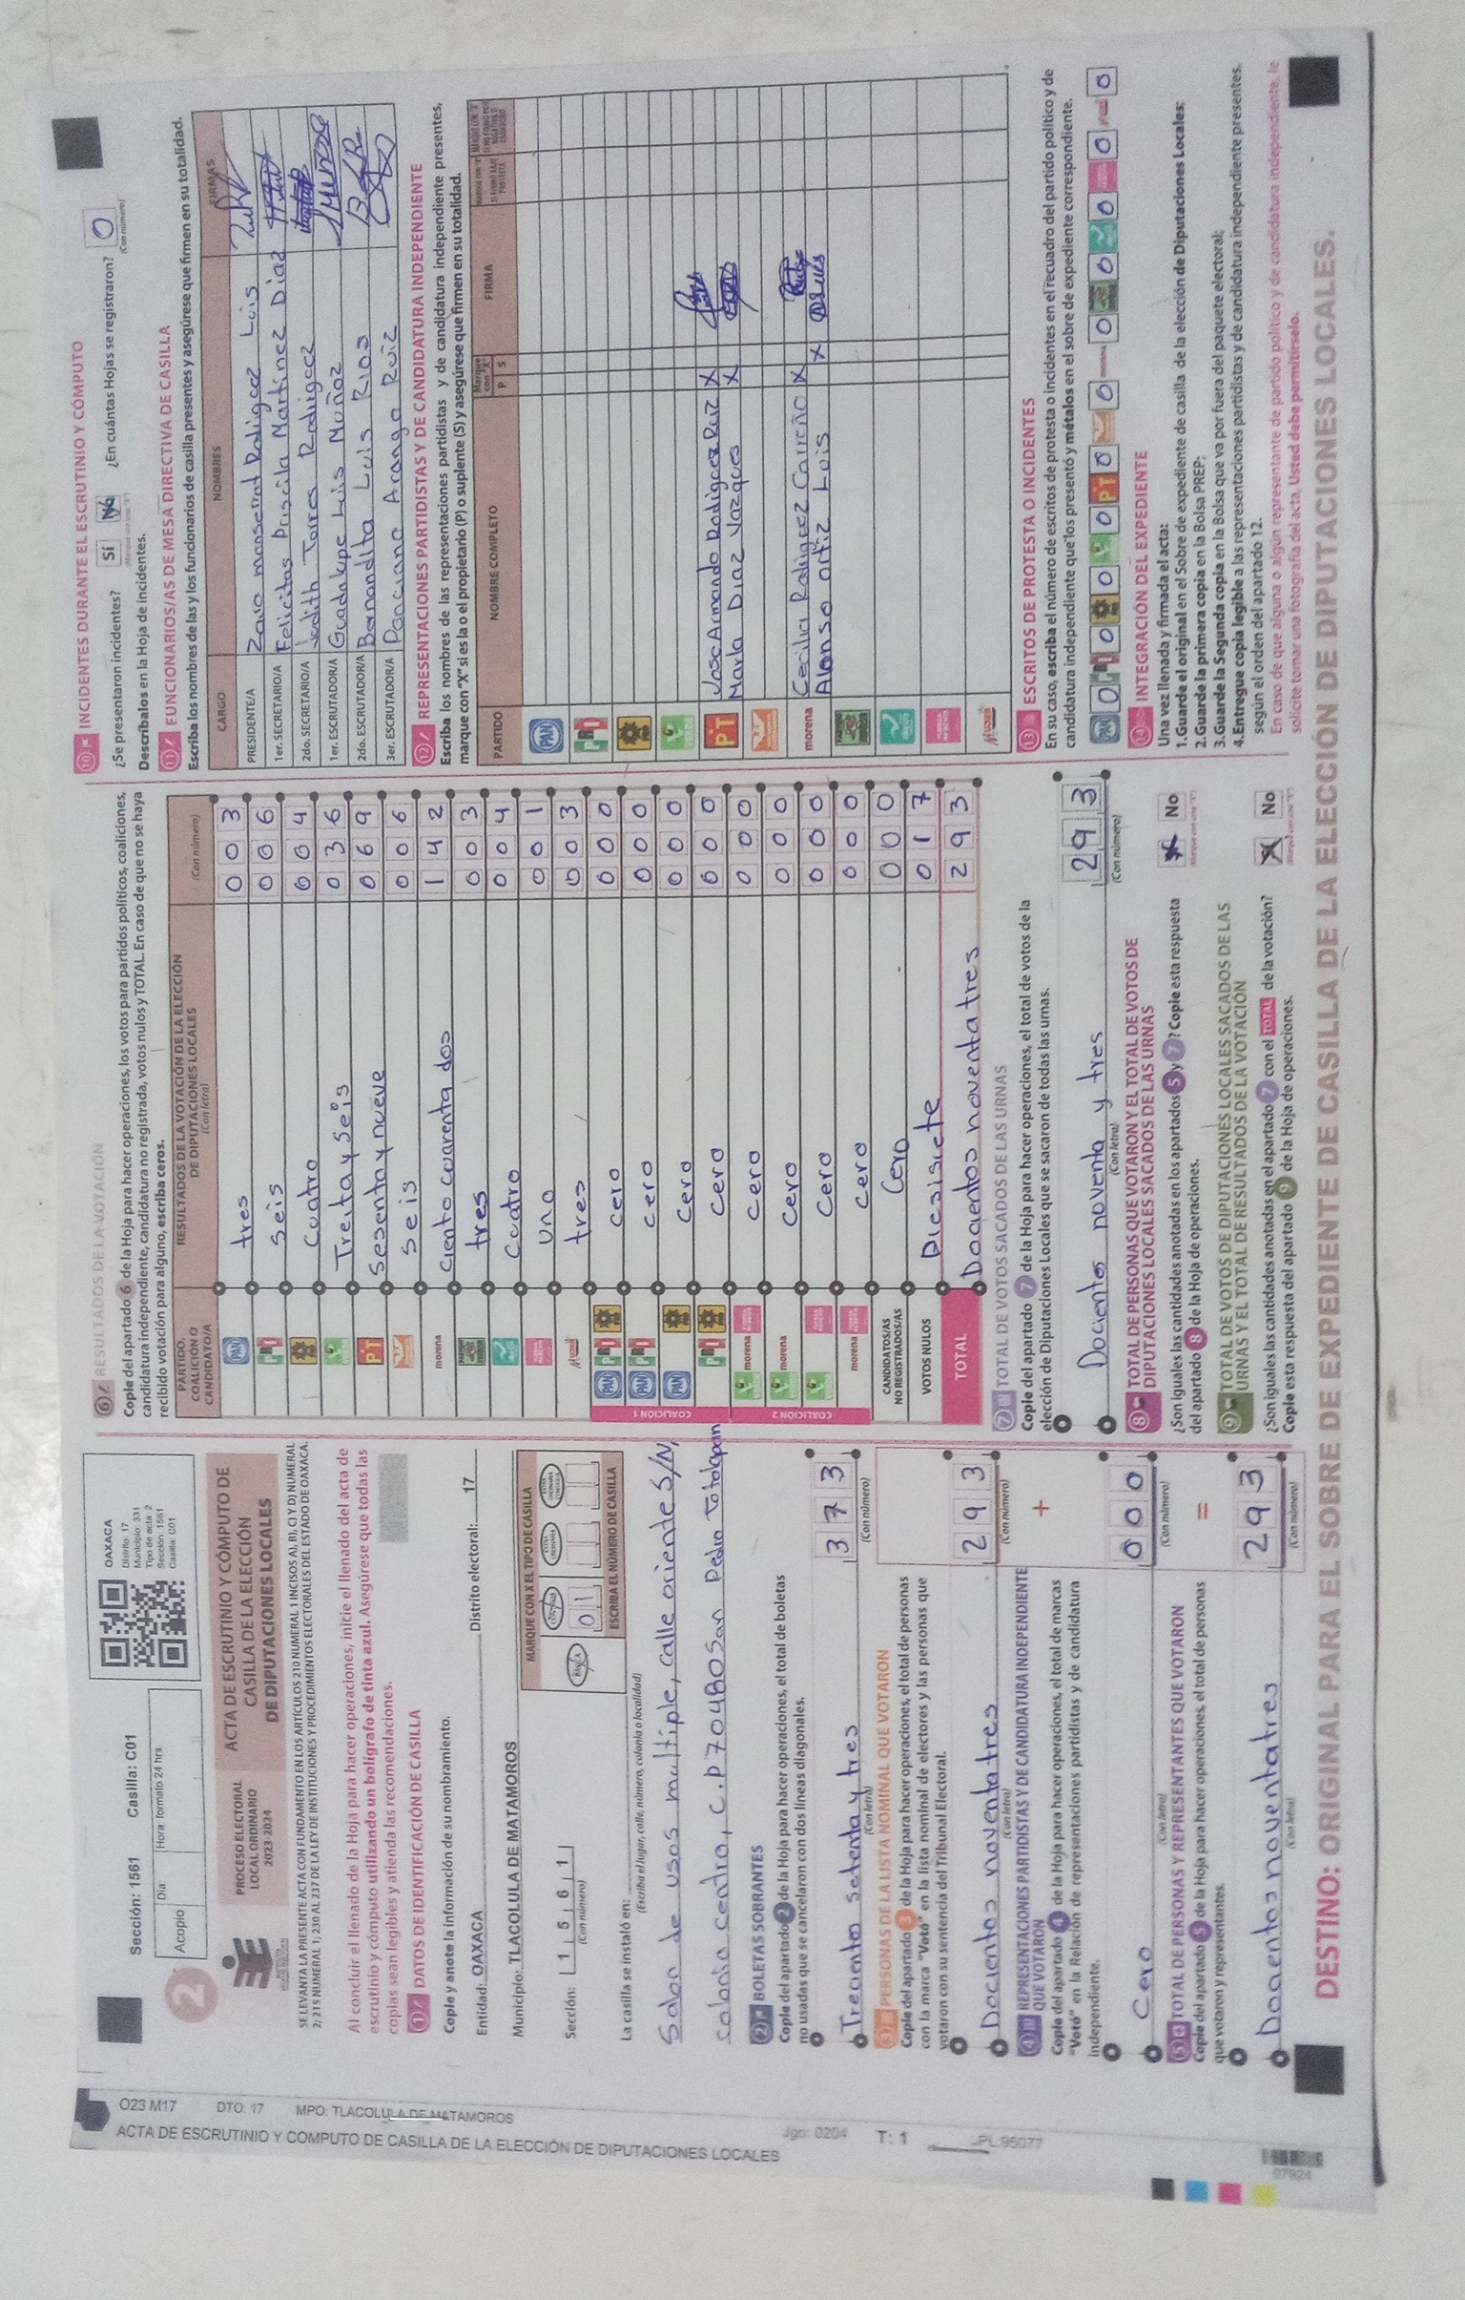 O23 M17 DTO: 17 MPO: TLACOLULA DE MATAMOROS
ACTA DE ESCRUTINIO Y COMPUTO DE CASILLA DE LA ELECCIÓN DE DIPUTACIONES LOCALES
Jgo: 0204 T: 1 PL:95077
07924
Sección: 1561 Casilla: C01
2
Acopio
Día:
Hora: formato 24 hrs
OAXACA
Distrito: 17
Municipio: 331
Tipo de acta: 2
Sección: 1561
Casilla: C01
PROCESO ELECTORAL
LOCAL ORDINARIO
2023-2024
ACTA DE ESCRUTINIO Y CÓMPUTO DE
CASILLA DE LA ELECCIÓN
DE DIPUTACIONES LOCALES
SE LEVANTA LA PRESENTE ACTA CON FUNDAMENTO EN LOS ARTÍCULOS 210 NUMERAL 1 INCISOS A), B), C) Y D) NUMERAL
2; 215 NUMERAL 1; 230 AL 237 DE LA LEY DE INSTITUCIONES Y PROCEDIMIENTOS ELECTORALES DEL ESTADO DE OAXACA.
Al concluir el llenado de la Hoja para hacer operaciones, inicie el llenado del acta de
escrutinio y cómputo utilizando un bolígrafo de tinta azul. Asegúrese que todas las
copias sean legibles y atienda las recomendaciones.
1 DATOS DE IDENTIFICACIÓN DE CASILLA
Copie y anote la información de su nombramiento.
Entidad: OAXACA Distrito electoral: 17
Municipio: TLACOLULA DE MATAMOROS
Sección: 1 5 6 1
(Con número)
MARQUE CON X EL TIPO DE CASILLA
BÁSICA
01
ESCRIBA EL NÚMERO DE CASILLA
La casilla se instaló en:
(Escriba el lugar, calle, número, colonia o localidad)
Salon de usos multiple, calle oriente S/N,
colonia centro, C.P 70480 San Pedro Totolapan
2 BOLETAS SOBRANTES
Copie del apartado 2 de la Hoja para hacer operaciones, el total de boletas
no usadas que se cancelaron con dos líneas diagonales.
Treciento setenta y tres 3 7 3
(Con letra) (Con número)
3 PERSONAS DE LA LISTA NOMINAL QUE VOTARON
Copie del apartado 3 de la Hoja para hacer operaciones, el total de personas
con la marca "Votó" en la lista nominal de electores y las personas que
votaron con su sentencia del Tribunal Electoral.
Docientos noventa tres 2 9 3
(Con letra) (Con número)
4 REPRESENTACIONES PARTIDISTAS Y DE CANDIDATURA INDEPENDIENTE
QUE VOTARON
Copie del apartado 4 de la Hoja para hacer operaciones, el total de marcas
"Votó" en la Relación de representaciones partidistas y de candidatura
independiente.
+
Cero 0 0 0
(Con letra) (Con número)
5 TOTAL DE PERSONAS Y REPRESENTANTES QUE VOTARON
Copie del apartado 5 de la Hoja para hacer operaciones, el total de personas
que votaron y representantes.
=
Docentos noventa tres 2 9 3
(Con letra) (Con número)
6 RESULTADOS DE LA VOTACIÓN
Copie del apartado 6 de la Hoja para hacer operaciones, los votos para partidos políticos, coaliciones,
candidatura independiente, candidatura no registrada, votos nulos y TOTAL. En caso de que no se haya
recibido votación para alguno, escriba ceros.
PARTIDO, COALICIÓN O CANDIDATO/A
RESULTADOS DE LA VOTACIÓN DE LA ELECCIÓN
DE DIPUTACIONES LOCALES
(Con letra) (Con número)
PAN tres 0 0 3
PRI seis 0 0 6
cuatro 0 0 4
Treita y seis 0 3 6
PT sesenta y nueve 0 6 9
seis 0 0 6
morena ciento cuarenta dos 1 4 2
tres 0 0 3
cuatro 0 0 4
una 0 0 1
Mujer tres 0 0 3
COALICIÓN 1
PAN PRI cero 0 0 0
PAN PRI cero 0 0 0
PAN cero 0 0 0
PRI cero 0 0 0
COALICIÓN 2
morena cero 0 0 0
morena cero 0 0 0
cero 0 0 0
morena cero 0 0 0
CANDIDATOS/AS
NO REGISTRADOS/AS Cero 0 0 0
VOTOS NULOS Diesisiete 0 1 7
TOTAL Docientos noventa tres 2 9 3
7 TOTAL DE VOTOS SACADOS DE LAS URNAS
Copie del apartado 7 de la Hoja para hacer operaciones, el total de votos de la
elección de Diputaciones Locales que se sacaron de todas las urnas.
Docientos noventa y tres 2 9 3
(Con letra) (Con número)
8 TOTAL DE PERSONAS QUE VOTARON Y EL TOTAL DE VOTOS DE
DIPUTACIONES LOCALES SACADOS DE LAS URNAS
¿Son iguales las cantidades anotadas en los apartados 5 y 7? Copie esta respuesta
del apartado 8 de la Hoja de operaciones.
No
9 TOTAL DE VOTOS DE DIPUTACIONES LOCALES SACADOS DE LAS
URNAS Y EL TOTAL DE RESULTADOS DE LA VOTACIÓN
¿Son iguales las cantidades anotadas en el apartado 7 con el TOTAL de la votación?
Copie esta respuesta del apartado 9 de la Hoja de operaciones.
No
10 INCIDENTES DURANTE EL ESCRUTINIO Y CÓMPUTO
¿Se presentaron incidentes? Sí No ¿En cuántas Hojas se registraron? 0
(Con número)
Descríbalos en la Hoja de incidentes.
11 FUNCIONARIOS/AS DE MESA DIRECTIVA DE CASILLA
Escriba los nombres de las y los funcionarios de casilla presentes y asegúrese que firmen en su totalidad.
CARGO NOMBRES FIRMAS
PRESIDENTE/A Zava monserrad Rodriguez Luis
1er. SECRETARIO/A Felicitas Priscila Martinez Diaz
2do. SECRETARIO/A Judith Torres Rodriguez
1er. ESCRUTADOR/A Guadalupe Luis Muñoz
2do. ESCRUTADOR/A Bernandita Luis Rios
3er. ESCRUTADOR/A Ponciano Arango Ruiz
12 REPRESENTACIONES PARTIDISTAS Y DE CANDIDATURA INDEPENDIENTE
Escriba los nombres de las representaciones partidistas y de candidatura independiente presentes,
marque con "X" si es la o el propietario (P) o suplente (S) y asegúrese que firmen en su totalidad.
PARTIDO NOMBRE COMPLETO Marque con "X" P S FIRMA
PAN
PRI
PT Jose Armando Rodriguez Ruiz X
Marla Diaz Vazques X
morena Cecilia Rodriguez Carreño X
Alonso ortiz Luis X
Mujer
13 ESCRITOS DE PROTESTA O INCIDENTES
En su caso, escriba el número de escritos de protesta o incidentes en el recuadro del partido político y de
candidatura independiente que los presentó y métalos en el sobre de expediente correspondiente.
PAN 0 PRI 0 0 0 PT 0 0 0 0 0 0 0
14 INTEGRACIÓN DEL EXPEDIENTE
Una vez llenada y firmada el acta:
1.Guarde el original en el Sobre de expediente de casilla de la elección de Diputaciones Locales;
2.Guarde la primera copia en la Bolsa PREP;
3.Guarde la Segunda copia en la Bolsa que va por fuera del paquete electoral;
4.Entregue copia legible a las representaciones partidistas y de candidatura independiente presentes,
según el orden del apartado 12.
En caso de que alguna o algún representante de partido político y de candidatura independiente, le
solicite tomar una fotografía del acta, Usted debe permitírselo.
DESTINO: ORIGINAL PARA EL SOBRE DE EXPEDIENTE DE CASILLA DE LA ELECCIÓN DE DIPUTACIONES LOCALES.